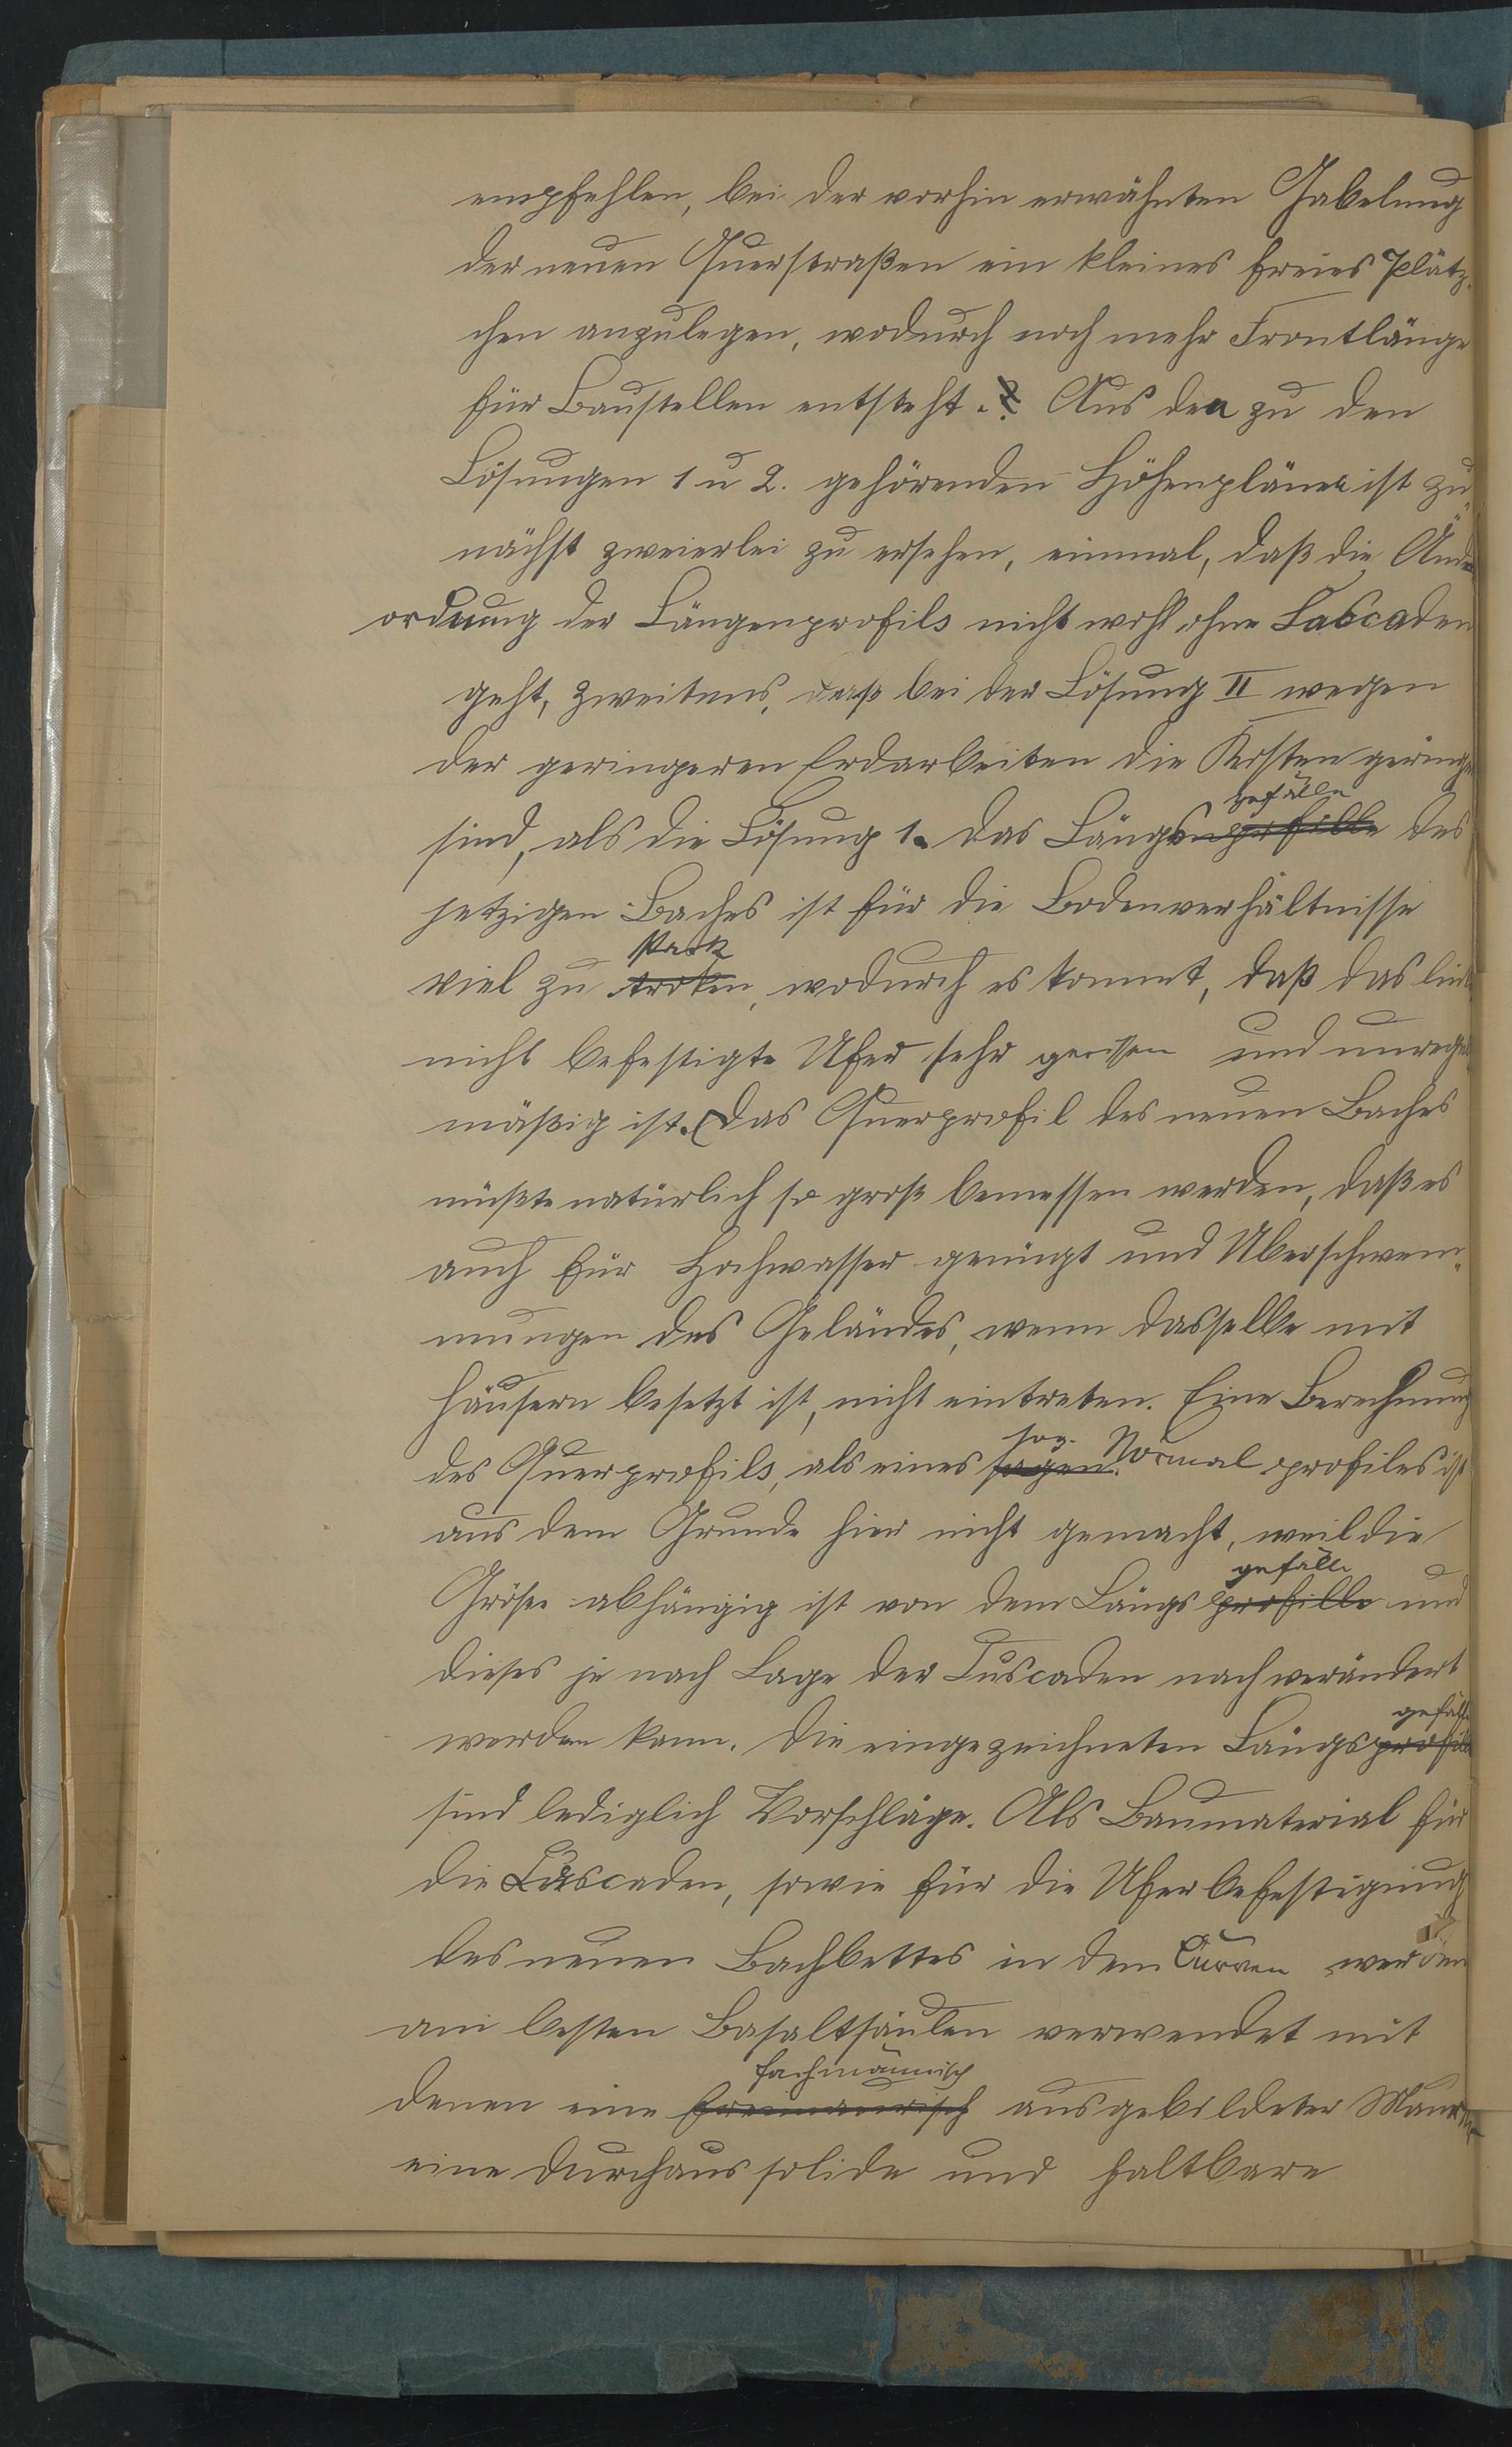 empfehlen, bei der vorhin erwähnten Gabelung
der neuen Querstraßen ein kleines freies Plätz-
chen anzulegen, wodurch noch mehr Frontlänge
für Baustellen entsteht. Aus den zu den
Lösungen 1 u 2. gehörenden Höhenpläne ist zu-
nächst zweierlei zu ersehen, einmal, daß die
ordnung der Längenprofils nicht wohl ohne Cascaden
geht, zweitens, daß bei der Lösung II wegen
der geringeren Erdarbeiten die Kosten geringer
gefälle
sind, als die Lösung 1. Das Längenprofille des
jetzigen Baches ist für die Bodenverhältnisse
stark
viel zu troken, wodurch es kommt, daß das linke
nicht befestigte Ufer sehr gerissen und unregel-
mäßig ist. Das Querprofil des neuen Baches
müßte natürlich so groß bemessen werden, daß es
auch für Hochwasser genügt und Überschwem-
mungen des Geländes, wenn dasselbe mit
Häusern besetzt ist, nicht eintreten. Eine Berechnung
sog.
des Querprofils, als eines sogen. Normal profiles ist
aus dem Grunde hier nicht gemacht, weil die
gefälle
Größe abhängig ist von dem Längsprofille und
dieses je nach Lage der Cuscaden nach verändert
gefälle
werden kann. Die eingezeichneten Längsprofille
sind lediglich Vorschläge. Als Baumaterial für
die Cascaden, sowie für die Uferbefestigung
des neuen Bachbettes in dem Curven werden
am besten Basaltsäulen verwendet mit
fachmännisch
denen eine ausgebildeter Maurer
eine durchaus solide und haltbare